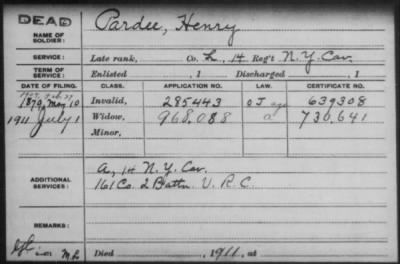 DEAD
NAME OF SOLDIER: Pardee, Henry
SERVICE: Late rank, Co. L, 14 Reg't N.Y. Cav.
TERM OF SERVICE: Enlisted , 1 Discharged , 1
DATE OF FILING. CLASS. APPLICATION NO. LAW. CERTIFICATE NO.
1907, Feb. 27
1879, May 10 Invalid, 285443 O J age 639308
1911 July 1 Widow, 968,088 a 730,641
Minor,
ADDITIONAL SERVICES: A, 14 N.Y. Cav.
161 Co. 2 Battn. V.R.C.
REMARKS:
6-071 Died , 1911, at